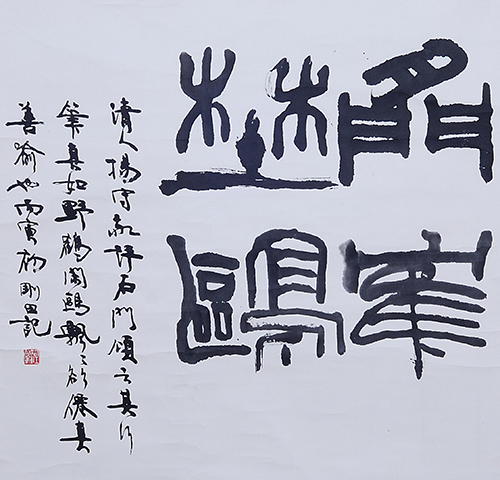 閒
埜鷗
清人楊守敬評石門頌云其行
筆真如野鶴聞鷗飄〻欲僊真
善喻也丙寅初剛田記